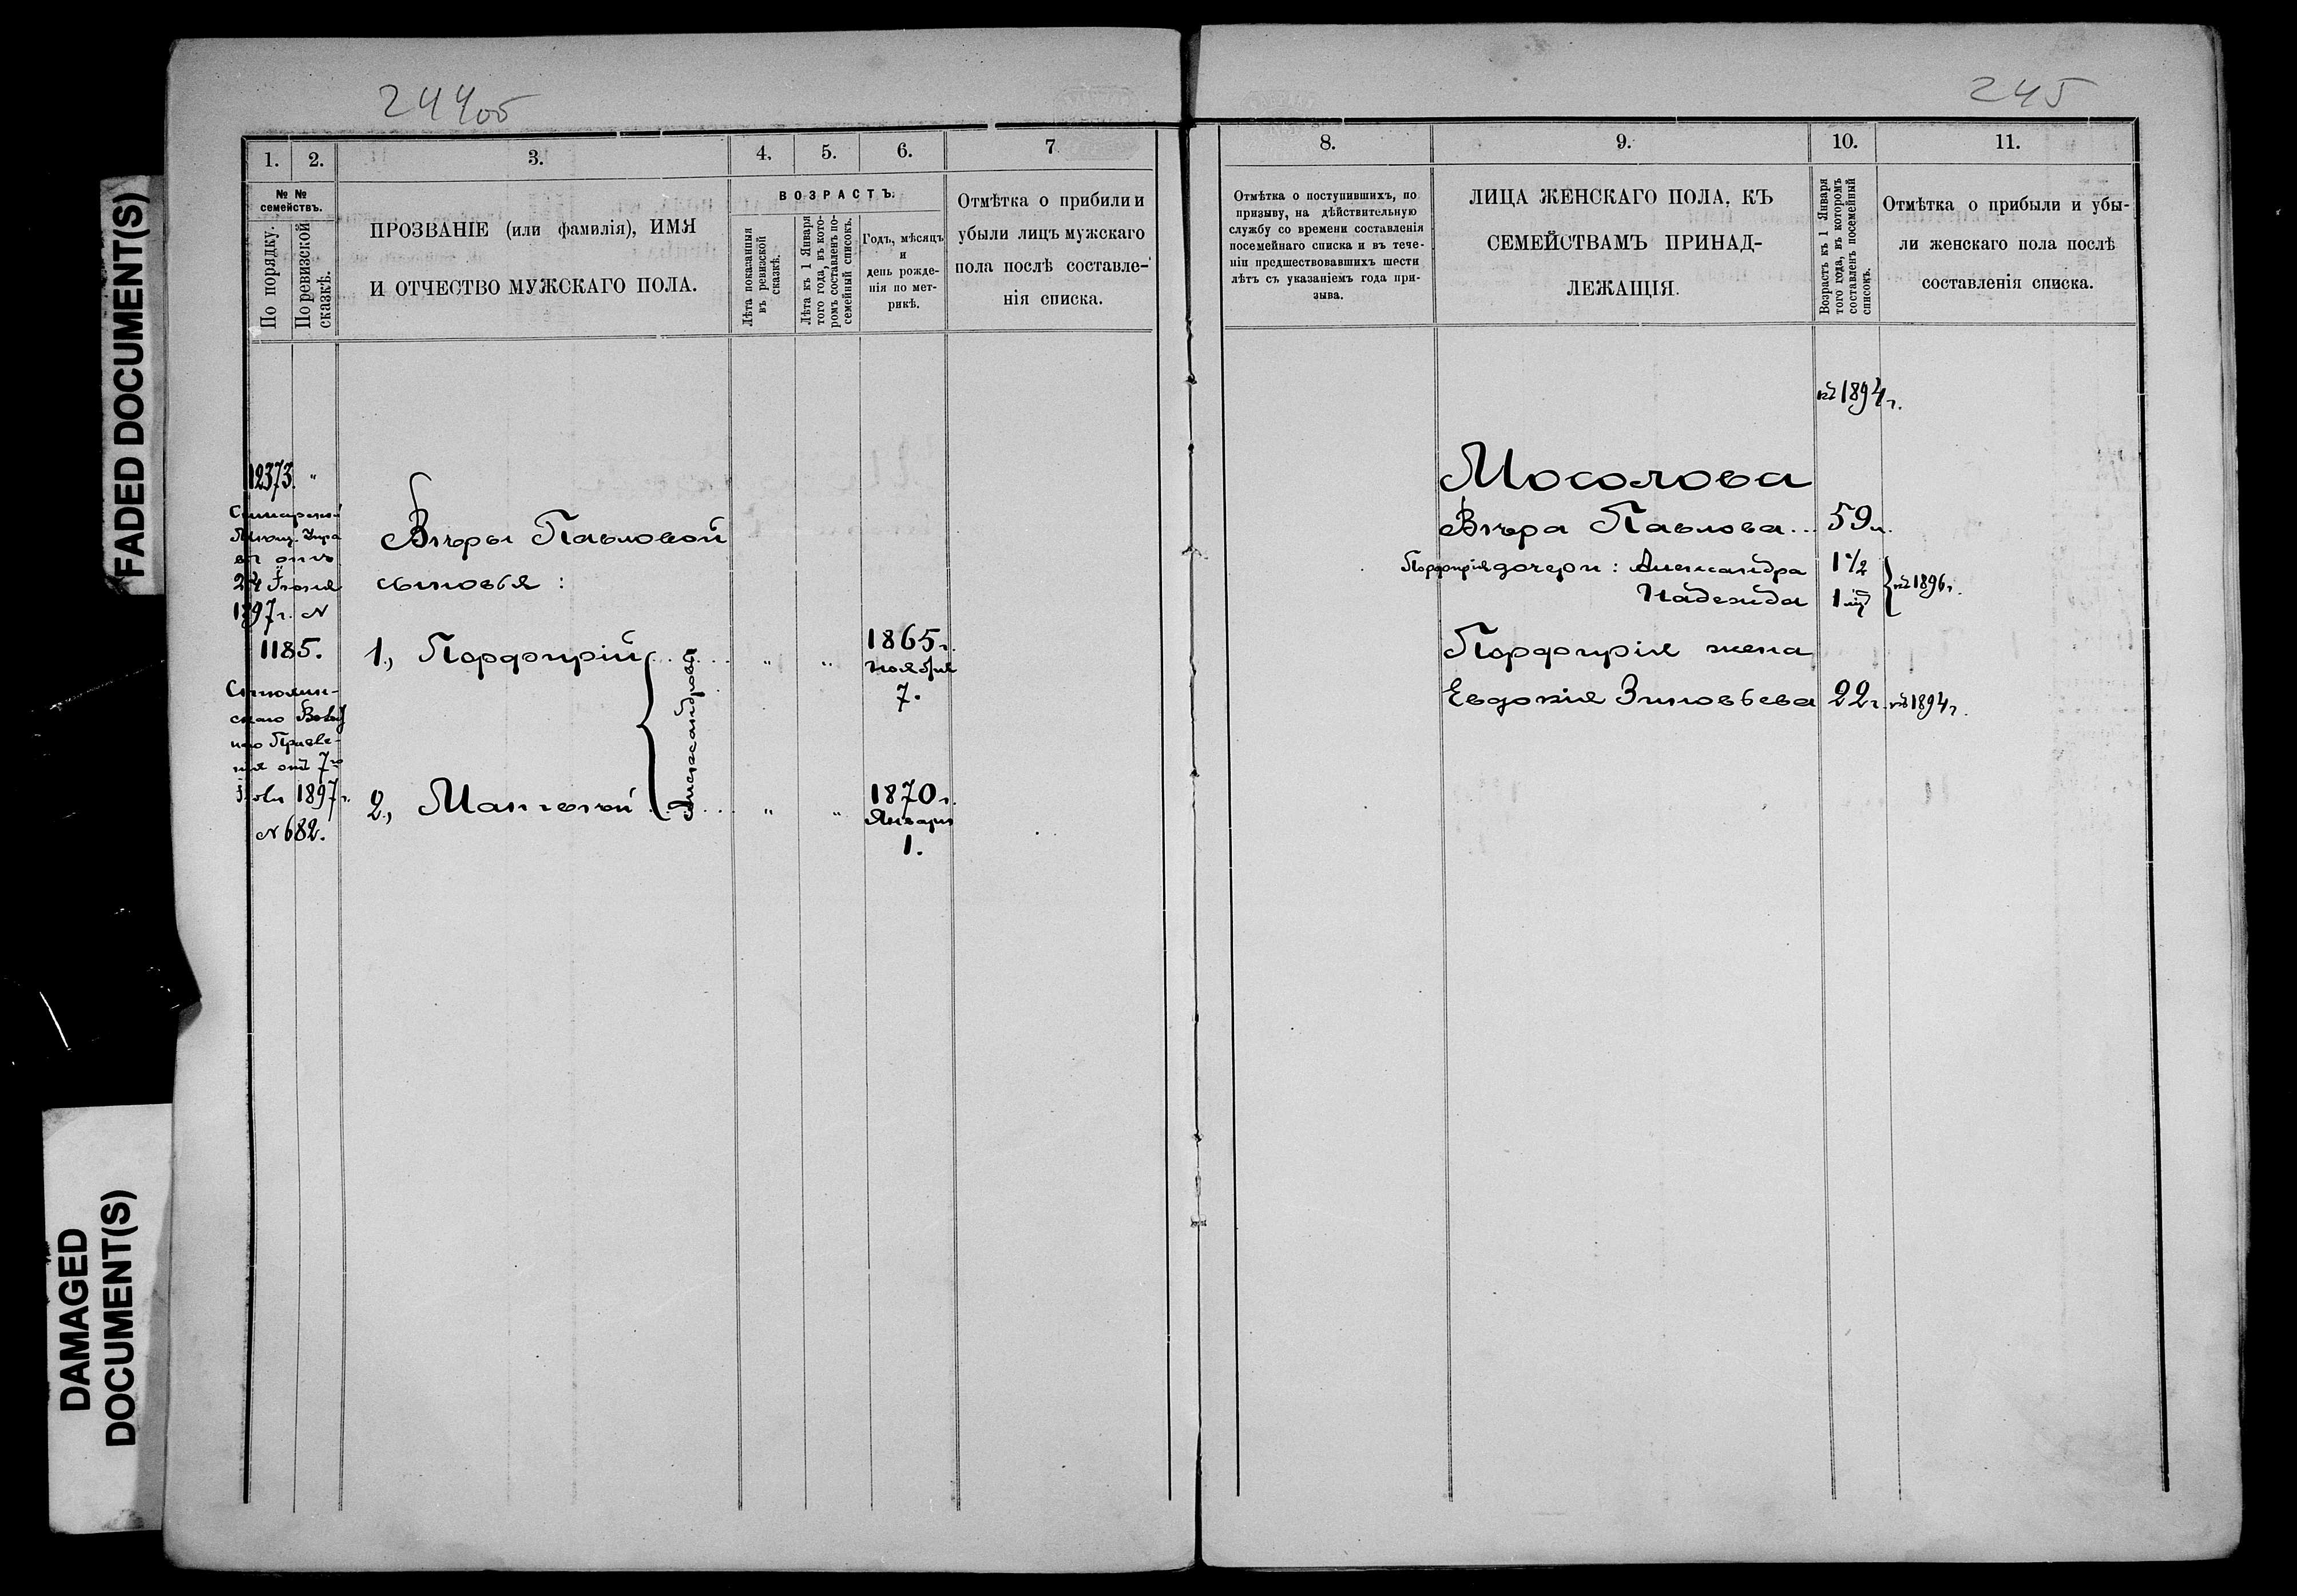 FADED DOCUMENT(S)
DAMAGED
DOCUMENT(S)
244об
1. 2. 3. 4. 5. 6. 7
№ №
семействъ.
По порядку.
По ревизской
сказкѣ.
ПРОЗВАНІЕ (или фамилія), ИМЯ
И ОТЧЕСТВО МУЖСКАГО ПОЛА.
ВОЗРАСТЪ.
Лѣта показанныя
въ ревизской
сказкѣ.
Лѣта къ 1 Января
того года, въ кото-
ромъ составленъ по-
семейный списокъ.
Годъ, мѣсяцъ
и
день рожде-
нія по мет-
рикѣ.
Отмѣтка о прибыли и
убыли лицъ мужскаго
пола послѣ составле-
нія списка.
12373. "
24 Іюня
1897 г. №
1185.
1897 г.
№ 682.
Вѣры Павловой
сыновья:
1., Порфирій
2.,
Александровы
" "
1865 г.
ноября
7.
" "
1870 г.
Января
1.
245
8. 9. 10. 11.
Отмѣтка о поступившихъ, по
призыву, на дѣйствительную
службу со времени составленія
посемейнаго списка и въ тече-
ніи предшествовавшихъ шести
лѣтъ съ указаніемъ года при-
зыва.
ЛИЦА ЖЕНСКАГО ПОЛА, КЪ
СЕМЕЙСТВАМЪ ПРИНАД-
ЛЕЖАЩІЯ.
Возрастъ къ 1 Января
того года, въ которомъ
составленъ посемейный
списокъ.
Отмѣтка о прибыли и убы-
ли женскаго пола послѣ
составленія списка.
къ 1894 г.
Мосолова
Вѣра Павлова... 59 л.
Порфирія дочери: Александра 1 1/2
Надежда 1 къ 1896 г.
Порфирія жена
Евдокія Зиновьева 22 г. къ 1894 г.